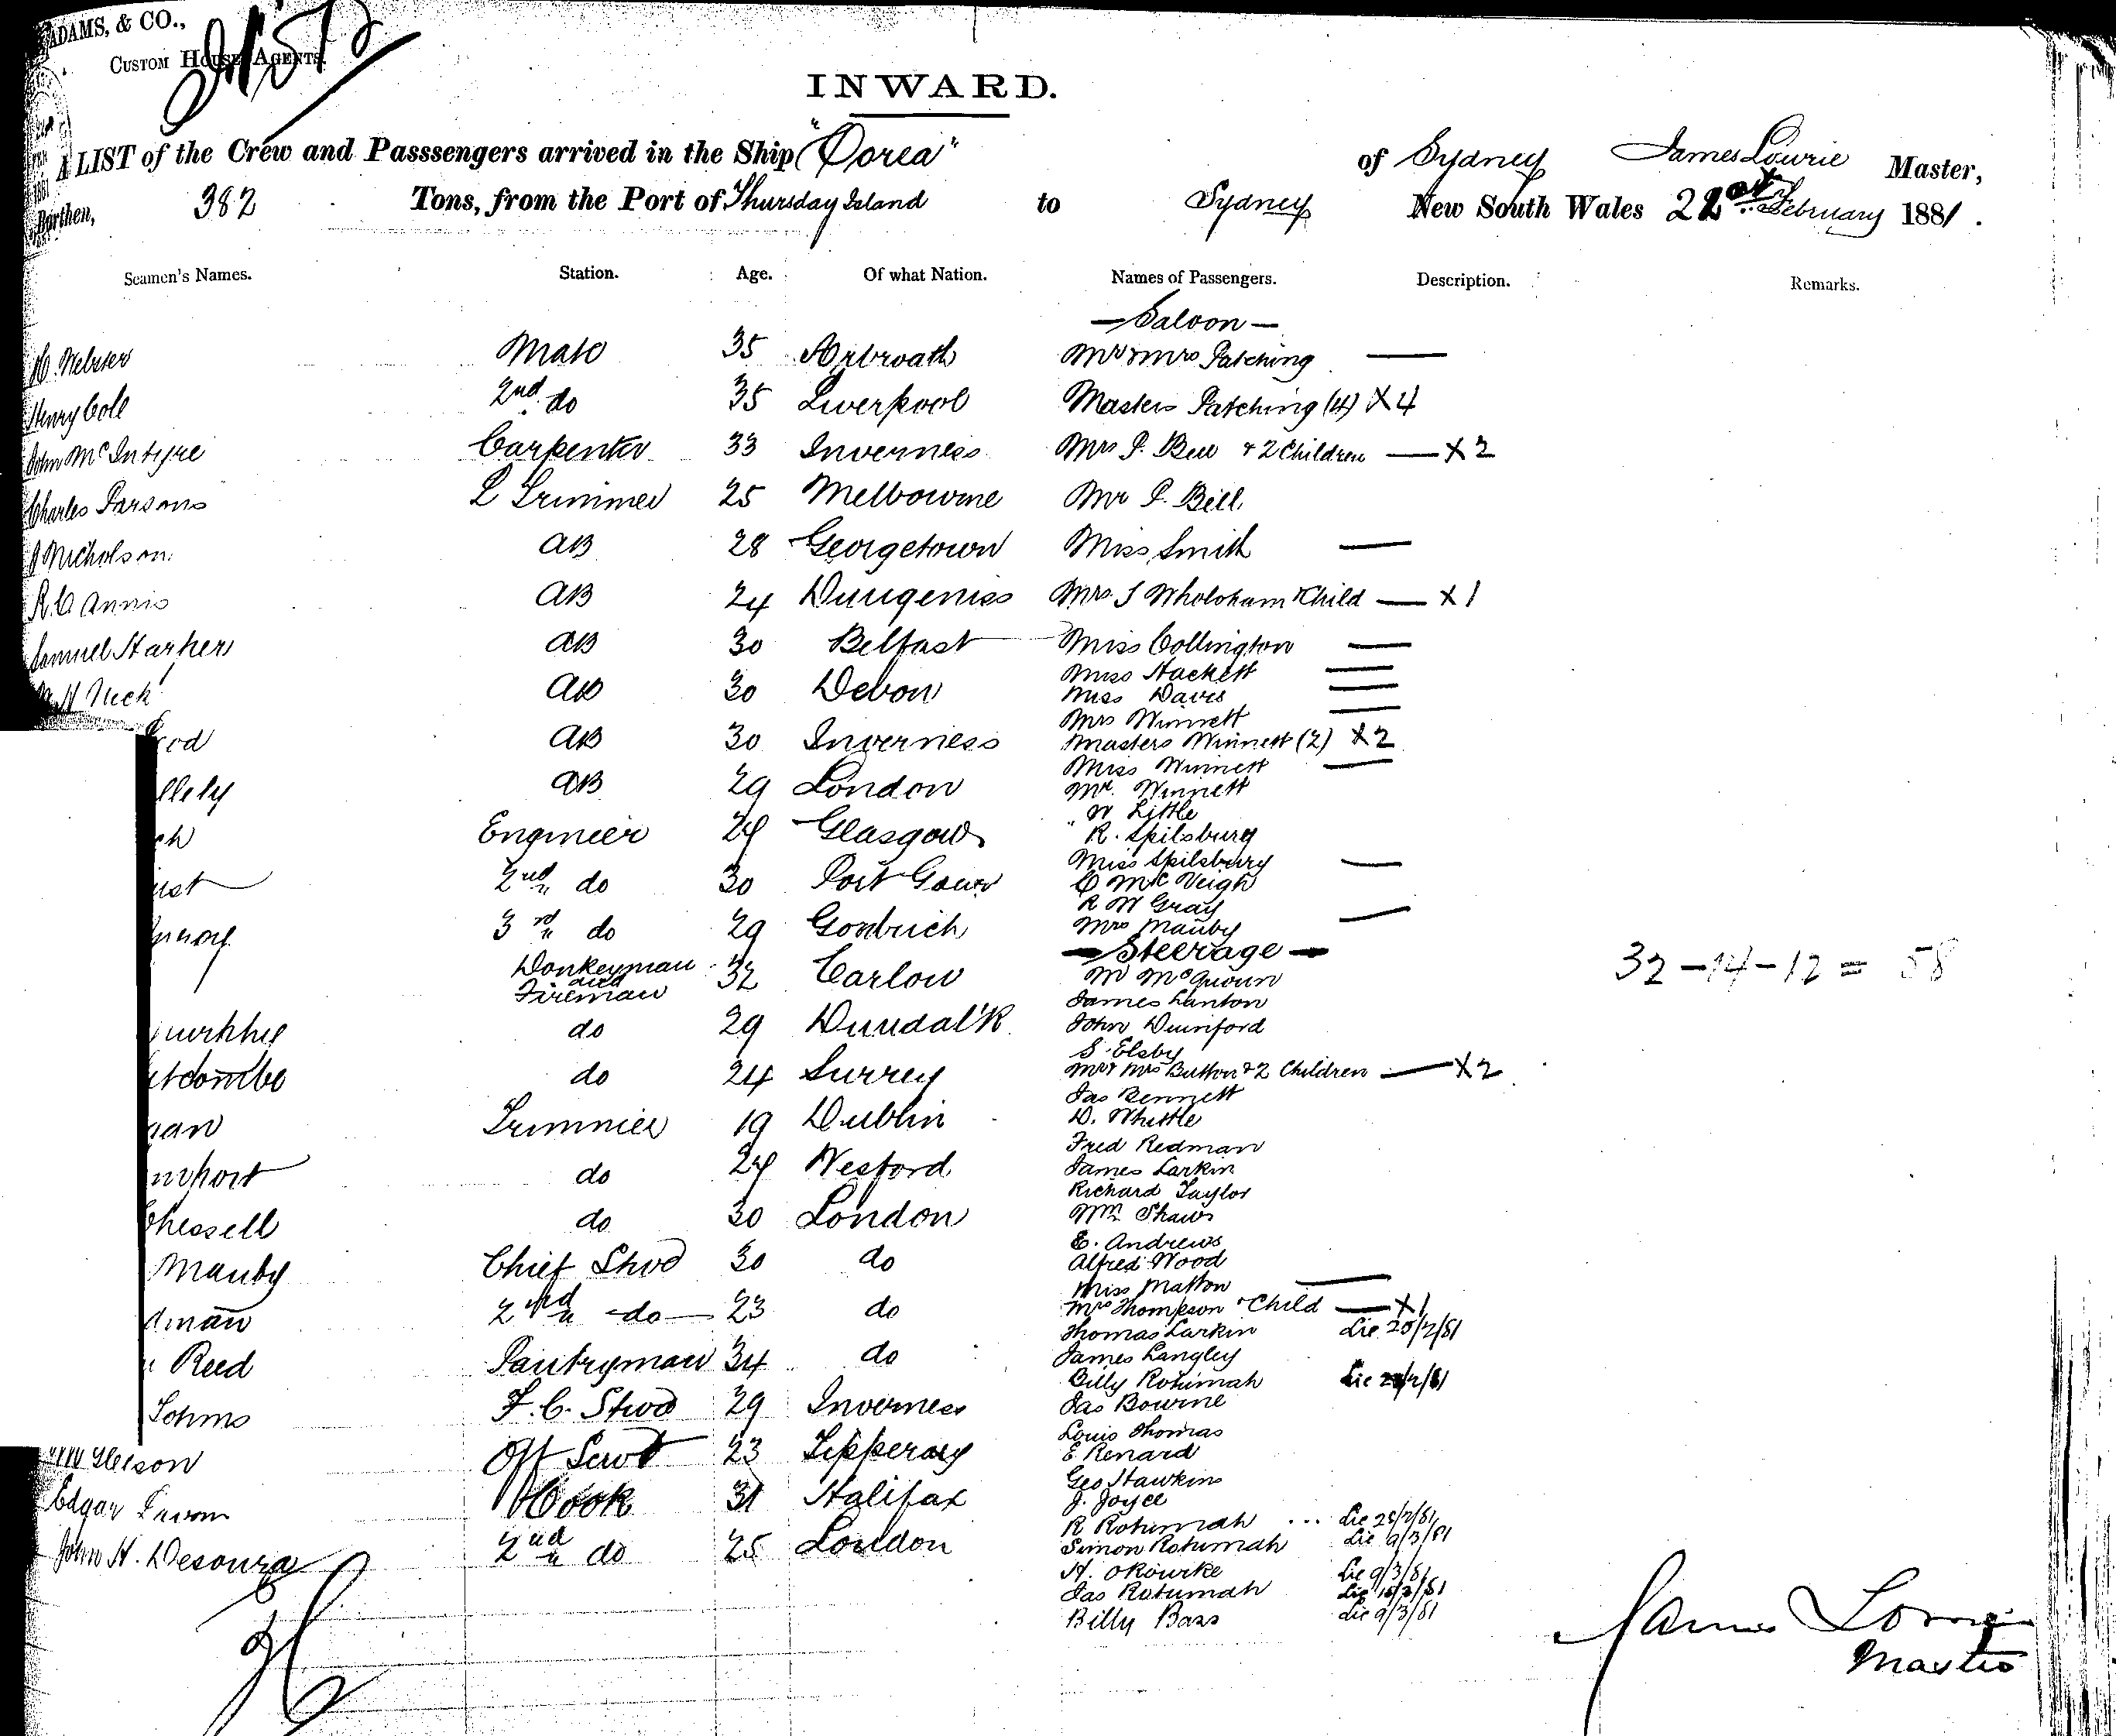 ADAMS, & CO.,
CUSTOM HOUSE AGENTS.
INWARD.
A LIST of the Crew and Passsengers arrived in the Ship "Corea" of Sydney James Lowrie Master,
Burthen, 382 Tons, from the Port of Thursday Island to Sydney New South Wales February 1881.
Seamen's Names. Station. Age. Of what Nation. Names of Passengers. Description. Remarks.
— Saloon —
Webster Mate 35 Arbroath Mr & Mrs Patching —
Henry Cole 2nd do 35 Liverpool Masters Patching (4) X 4
John McIntyre Carpenter 33 Inverness Mrs P. Bell & 2 Children — X 2
Charles Parsons L Trimmer 25 Melbourne Mr P. Bell.
Nicholson AB 28 Georgetown Miss Smith —
R. C. Annis AB 24 Dungeness Mrs J Wholoham & Child — X 1
Samuel Harker AB 30 Belfast Miss Collington —
Miss Hackett —
AB 30 Devon Miss Davis —
Mrs Winnett —
rod AB 30 Inverness Masters Winnett (2) X 2
Miss Winnett —
llely AB 29 London Mr. Winnett
" W Little
ch Engineer 29 Glasgow R. Spilsbury
Miss Spilsbury —
ist 2nd do 30 Port Gower C McVeigh
R W Gray
3rd do 29 Mrs Mauby —
— Steerage —
Donkeyman and Fireman 32 Carlow M McQuown
James Lanton
do 29 Dundalk John Durnford
S. Elsby
etcombe do 24 Surrey Mr & Mrs Button & 2 Children — X 2
Jas Bennett
gan Trimmer 19 Dublin D. Whittle
Fred Redman
do 24 Wexford James Larkin
Richard Taylor
Chessell do 30 London Wm Shaw
E. Andrews
Mauby Chief Stwd 30 do Alfred Wood
Miss Matton —
dman 2nd do 23 do Mrs Thompson & Child — X 1
Thomas Larkin Lic 25/2/81
Reed Pantryman 34 do James Langley
Billy Rotumah
Johns F. C. Stwd 29 Inverness Jas Bourne
Louis Thomas
Gleeson Off Servt 23 Tipperary E Renard
Geo Hawkins
Edgar Cook 31 Halifax J. Joyce
R Rotumah ... Lic 25/2/81
John H. Desouza 2nd do 25 London Simon Rotumah Lic 9/3/81
H. ORourke Lic 9/3/81
Jas Rotumah
Billy Bass Lic 9/3/81
32 – 14 – 12 = 58
James Lowrie
Master